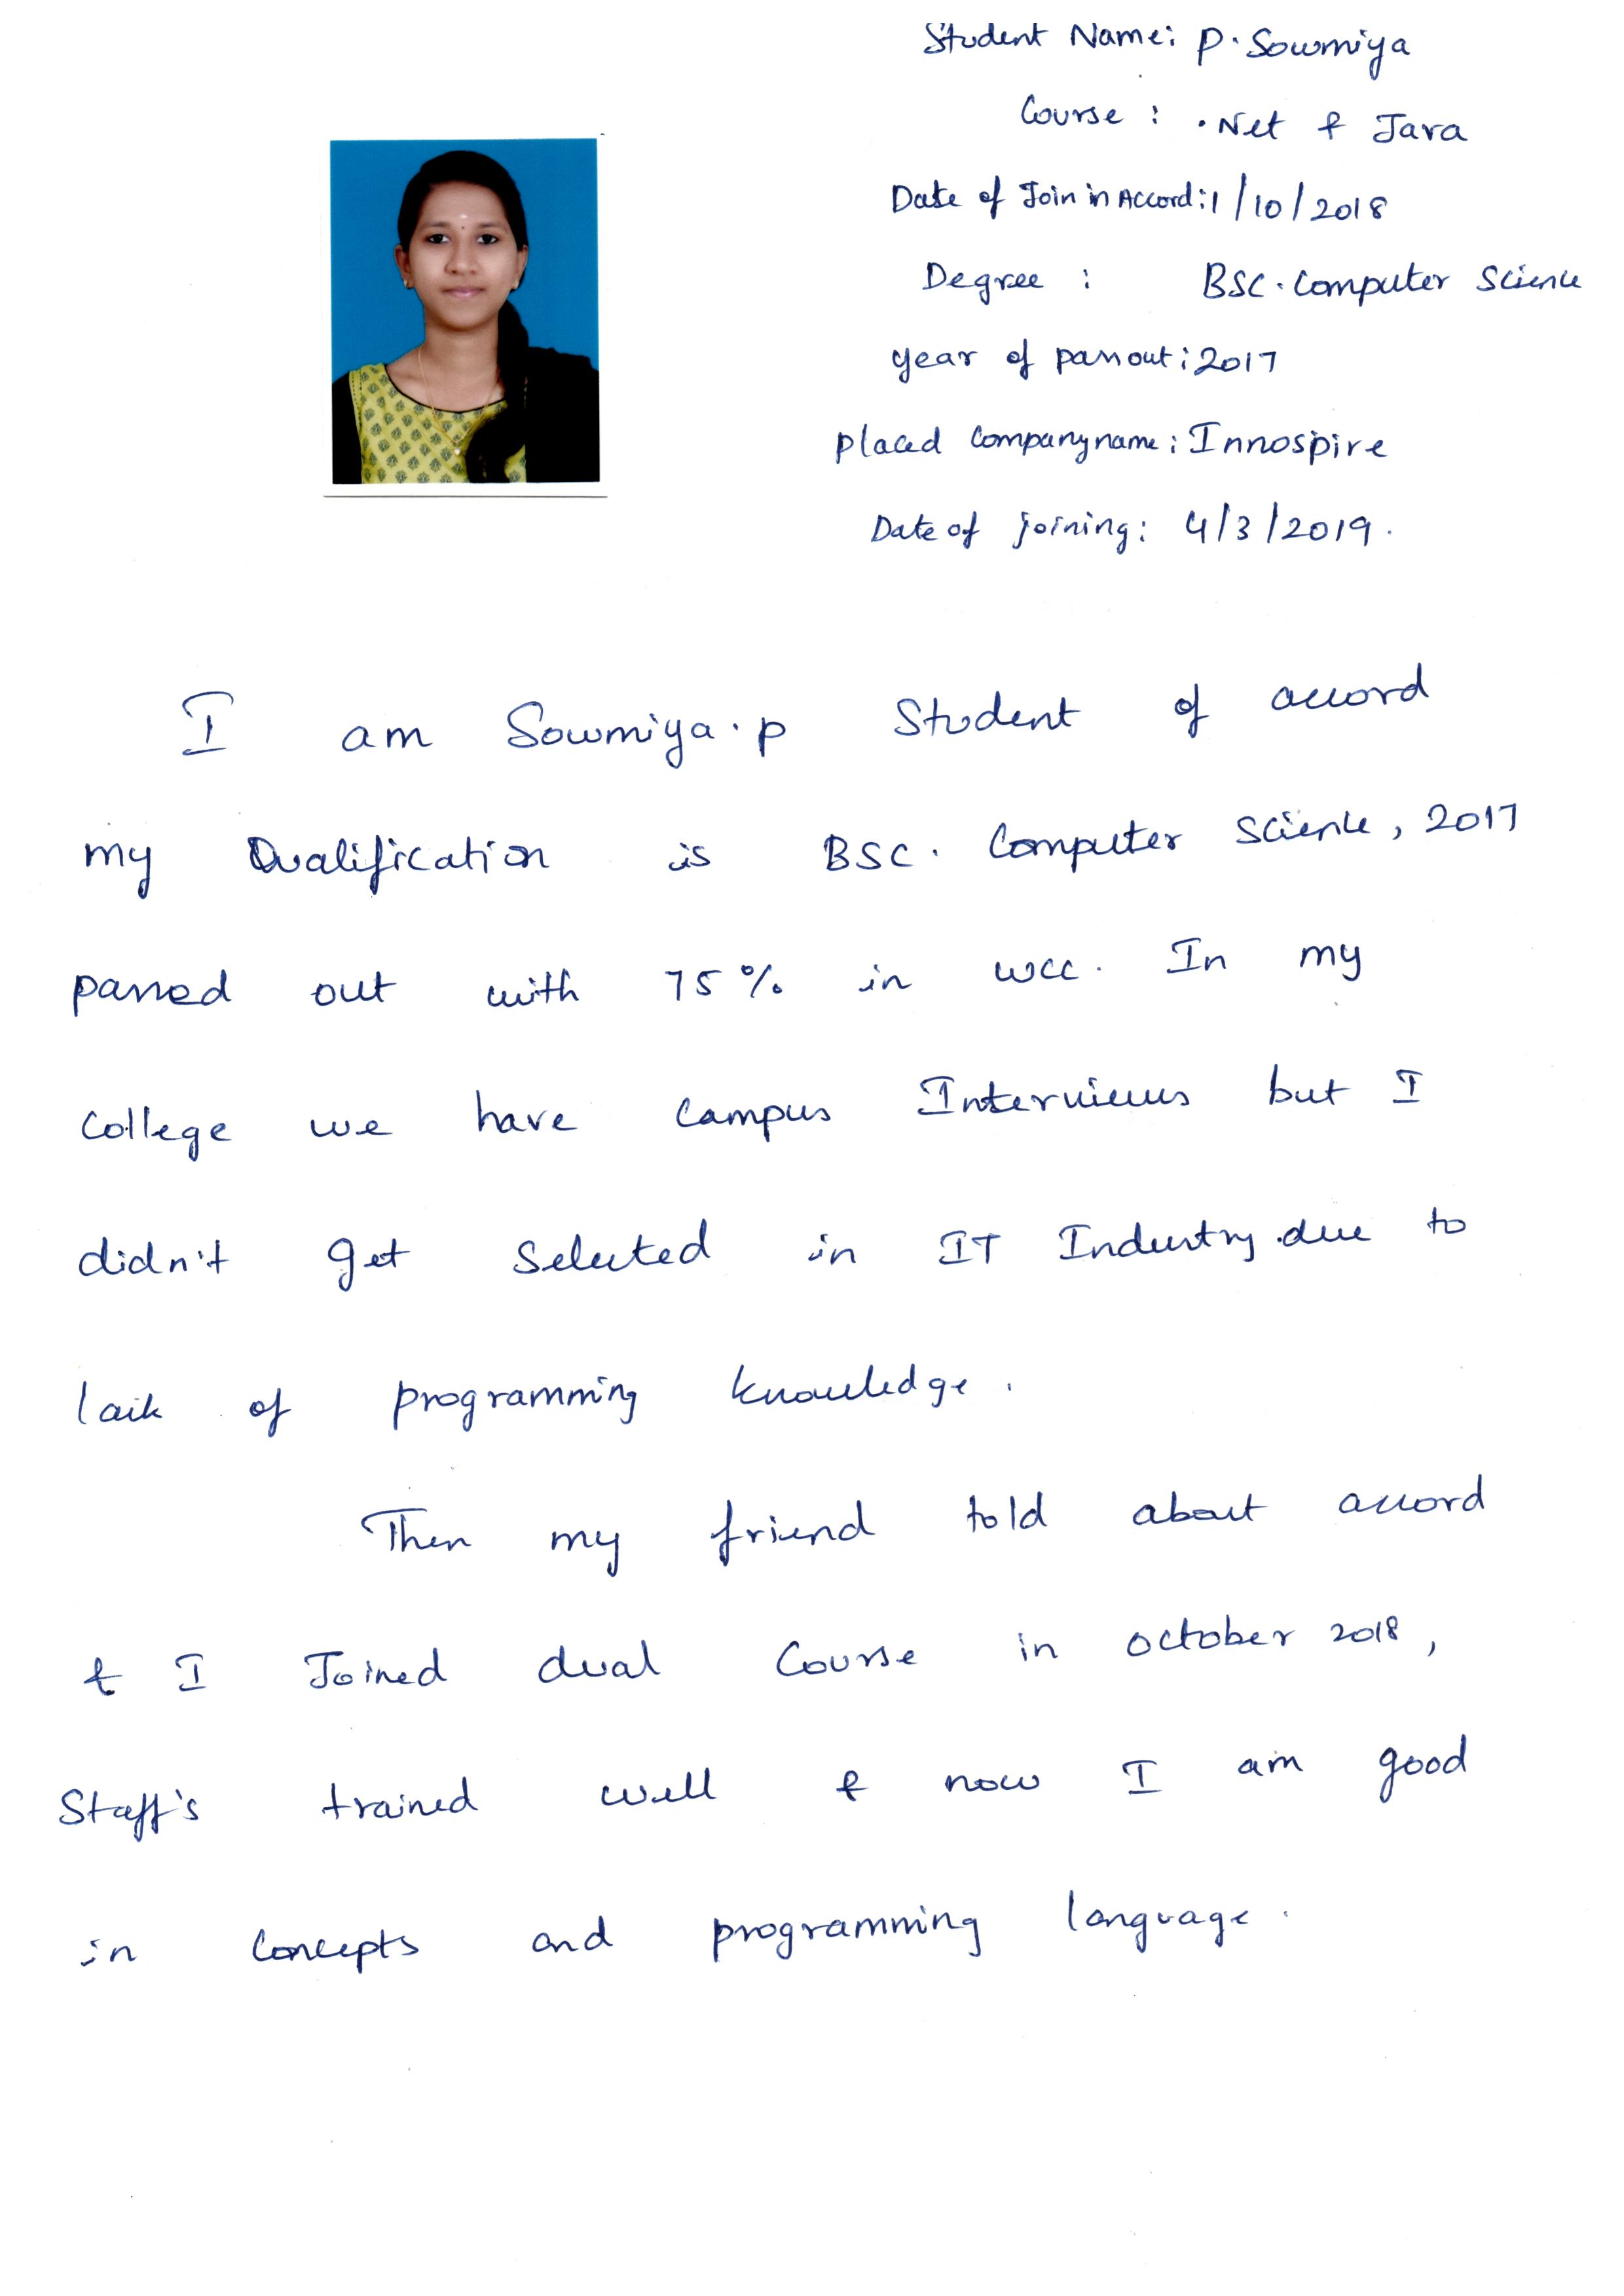 Student Name: P. Sowmiya
Course : .Net & Java
Date of Join in Accord: 1/10/2018
Degree : BSC. Computer Science
year of passout: 2017
placed Company name: Innospire
Date of joining: 4/3/2019.
I am Sowmiya.p Student of accord
my Qualification is BSC. Computer Science, 2017
passed out with 75% in wcc. In my
College we have Campus Interviews but I
didn't get Selected in IT Industry due to
lack of programming knowledge.
Then my friend told about accord
& I Joined dual Course in october 2018,
Staff's trained well & now I am good
in Concepts and programming language.